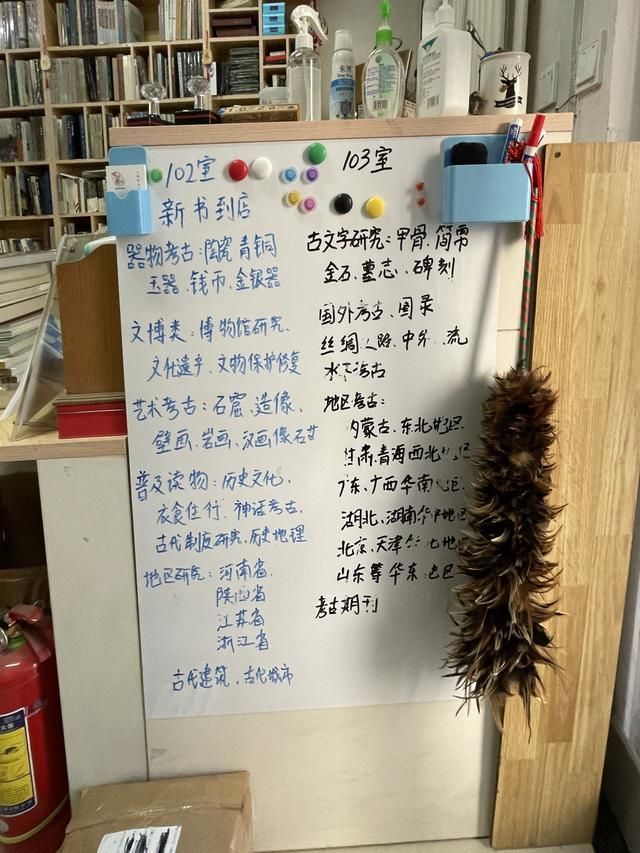 102室
新书到店
器物考古：陶瓷 青铜
玉器、钱币、金银器
文博类：博物馆研究、
文化遗产、文物保护修复
艺术考古：石窟、造像、
壁画、岩画、汉画像石
普及读物：历史文化、
衣食住行、神话考古、
古代制度研究、历史地理
地区研究：河南省、
陕西省
江苏省
浙江省
古代建筑、古代城市
103室
古文字研究：甲骨、简帛
金石、墓志、碑刻
国外考古、图录
丝绸 路、中外 流
水下考古
地区考古：
内蒙古、东北 区
甘肃、青海西北 区
广东、广西华南 区
湖北、湖南华中地区
北京、天津 地区
山东等华东 区
考古期刊